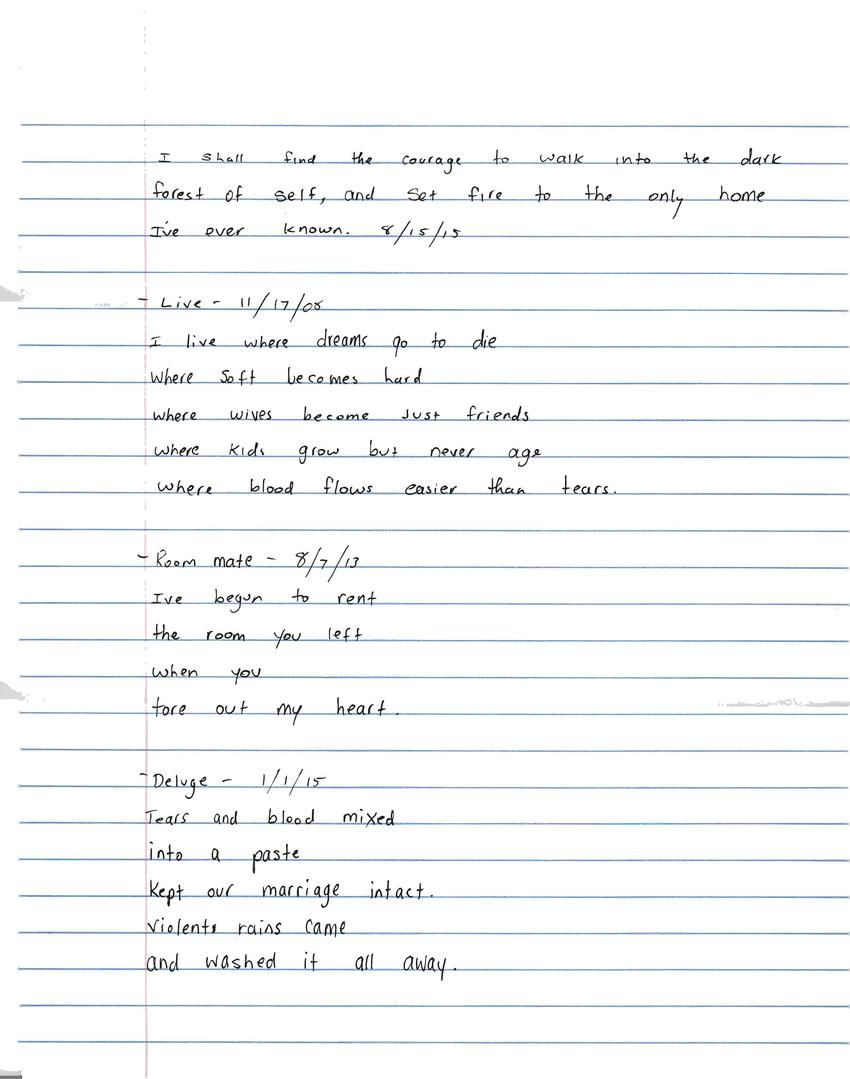 I shall find the courage to walk into the dark
forest of self, and set fire to the only home
I've ever known. 8/15/15
- Live - 11/17/08
I live where dreams go to die
where soft becomes hard
where wives become just friends
where kids grow but never age
where blood flows easier than tears.
- Room mate - 8/7/13
Ive begun to rent
the room you left
when you
tore out my heart.
- Deluge - 1/1/15
Tears and blood mixed
into a paste
kept our marriage intact.
Violents rains came
and washed it all away.